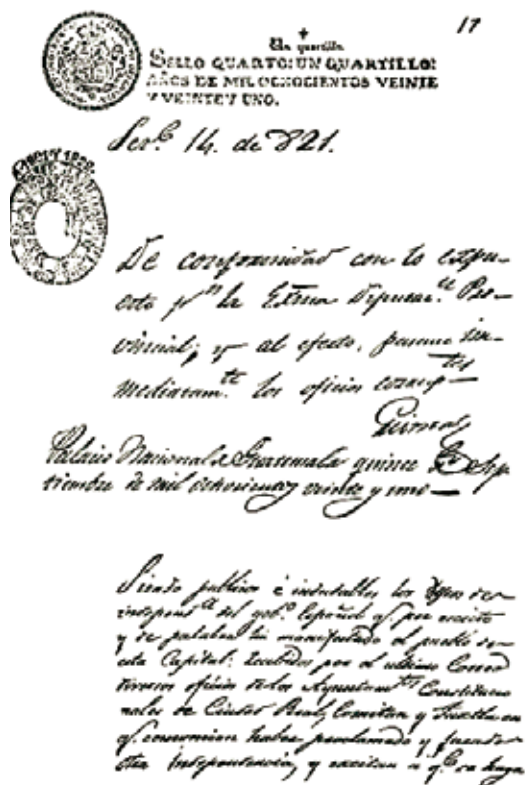 17
Un quartillo
SELLO QUARTO: UN QUARTILLO:
AÑOS DE MIL OCHOCIENTOS VEINTE
Y VEINTE Y UNO.
14. de 821.
De conformidad con lo expu-
esto pr. la Exma Diputan.  Pro-
vincial; y al efecto, 
mediatam.te los oficios
Palacio Nacional de Guatemala quince de Sep
tiembre de mil ochocientos veinte y uno
Siendo publicos é indudables los deseos de
independ.a del gob.o Español q. por escrito
y de palabra ha manifestado el pueblo de
esta Capital: recibidos por el ultimo Correo
diversos oficios de los Ayuntam.tos Constitucio
nales de Ciudad Real, Comitan y Tuxtla en
q. comunican haber proclamado y jurado
dha Independencia, y excitan a q.e se haga